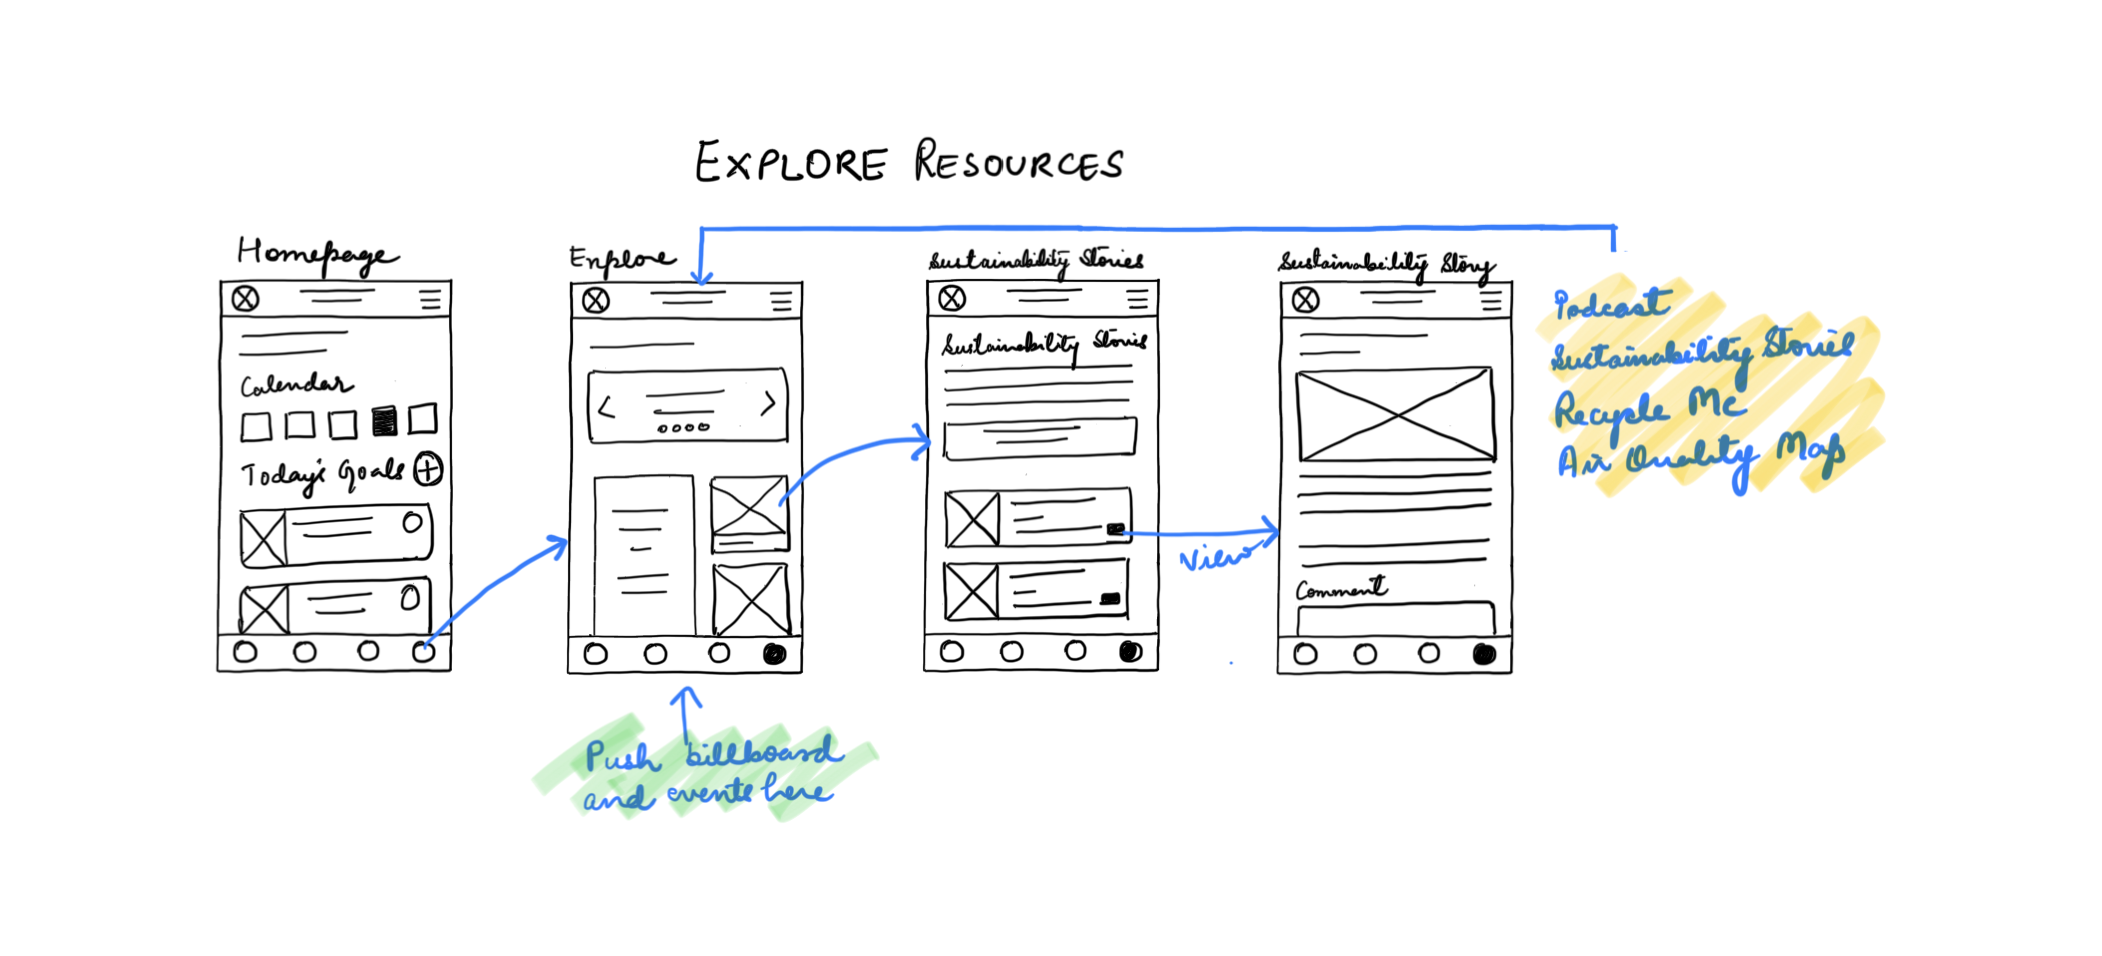 EXPLORE RESOURCES
Homepage
Calendar
Today's Goals
Explore
Push billboard
and events here
Sustainability Stories
Sustainability Stories
View
Sustainability Story
Comment
Podcast
Sustainability Stories
Recycle Me
Air Quality Map